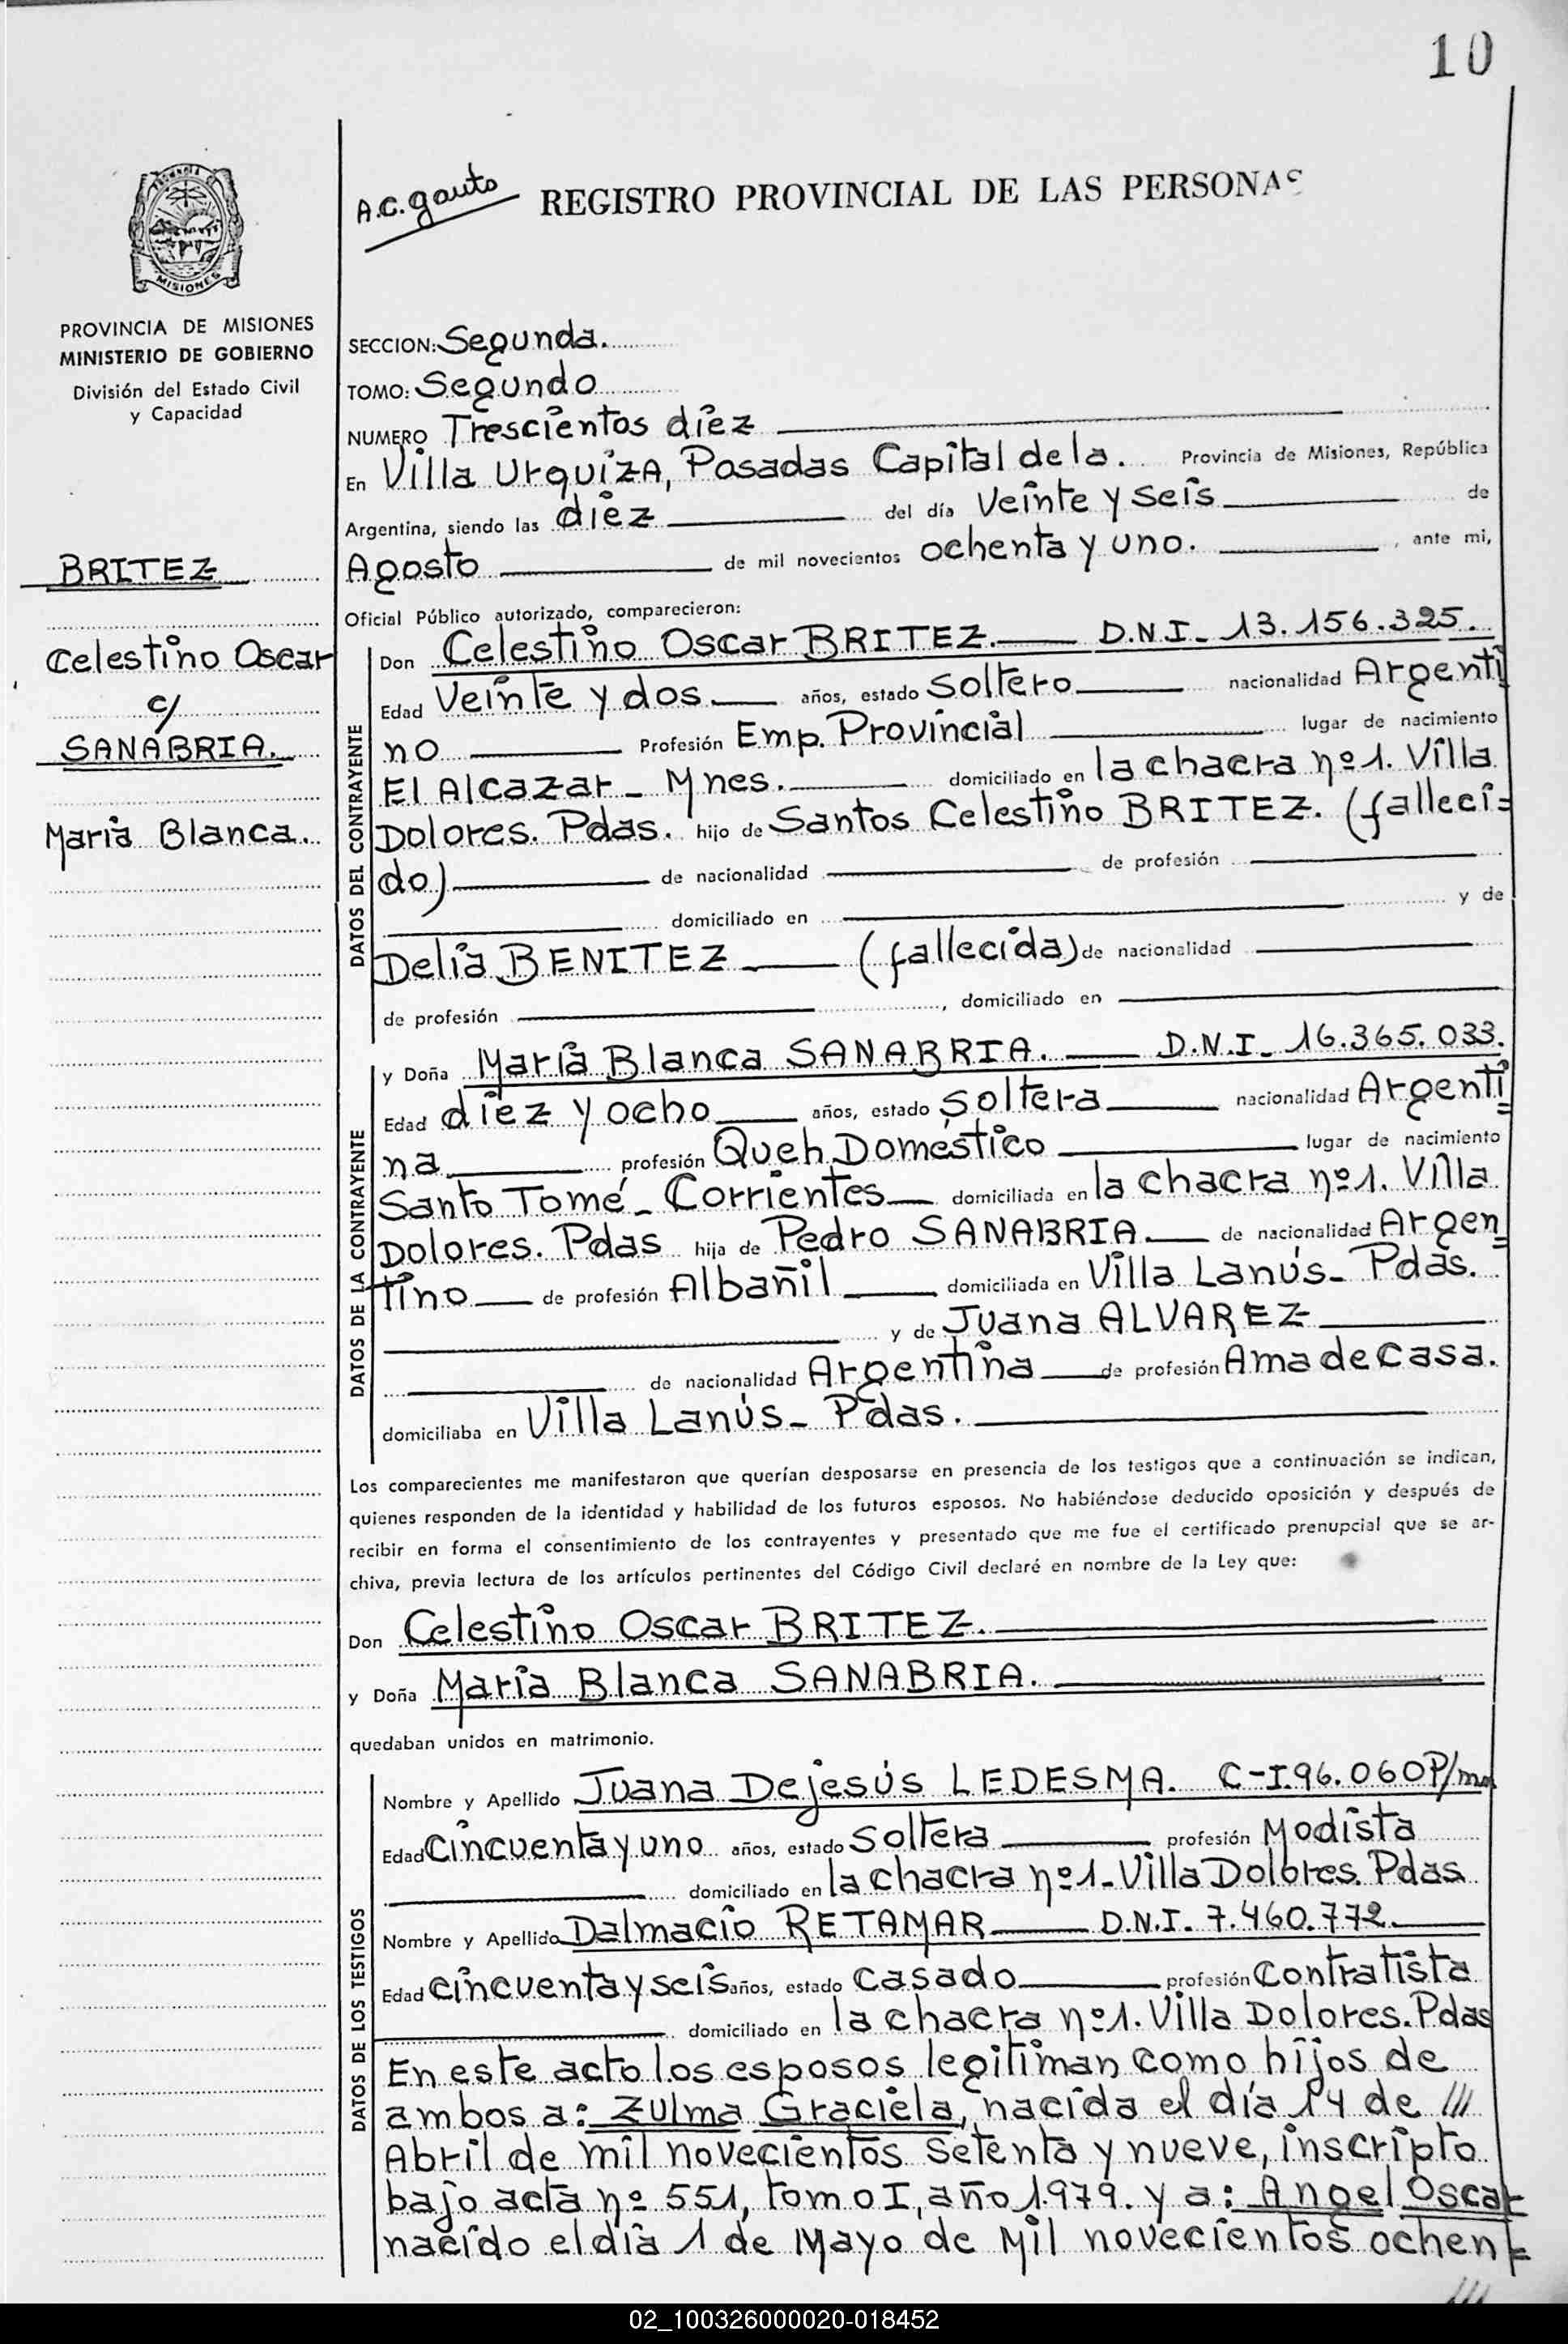 10
A.C. gauto
REGISTRO PROVINCIAL DE LAS PERSONAS
MISIONES
PROVINCIA DE MISIONES
MINISTERIO DE GOBIERNO
División del Estado Civil
y Capacidad
BRITEZ
Celestino Oscar
c/
SANABRIA.
María Blanca.
SECCION: Segunda.
TOMO: Segundo
NUMERO Trescientos diez
En Villa Urquiza, Posadas Capital de la. Provincia de Misiones, República
Argentina, siendo las diez del día Veinte y seis de
Agosto de mil novecientos ochenta y uno. , ante mi,
Oficial Público autorizado, comparecieron:
DATOS DEL CONTRAYENTE
Don Celestino Oscar BRITEZ. D.N.I. 13.156.325.
Edad Veinte y dos años, estado Soltero nacionalidad Argenti
no Profesión Emp. Provincial lugar de nacimiento
El Alcazar - Mnes. domiciliado en la chacra nº 1. Villa
Dolores. Pdas. hijo de Santos Celestino BRITEZ. (falleci=
do) de nacionalidad de profesión
domiciliado en y de
Delia BENITEZ (fallecida) de nacionalidad
de profesión , domiciliado en
DATOS DE LA CONTRAYENTE
y Doña María Blanca SANABRIA. D.N.I. 16.365.033.
Edad diez y ocho años, estado Soltera nacionalidad Argenti=
na profesión Queh. Doméstico lugar de nacimiento
Santo Tomé - Corrientes domiciliada en la chacra nº 1. Villa
Dolores. Pdas hija de Pedro SANABRIA. de nacionalidad Argen=
tino de profesión Albañil domiciliada en Villa Lanús - Pdas.
y de Juana ALVAREZ
de nacionalidad Argentina de profesión Ama de Casa.
domiciliaba en Villa Lanús - Pdas.
Los comparecientes me manifestaron que querían desposarse en presencia de los testigos que a continuación se indican,
quienes responden de la identidad y habilidad de los futuros esposos. No habiéndose deducido oposición y después de
recibir en forma el consentimiento de los contrayentes y presentado que me fue el certificado prenupcial que se ar-
chiva, previa lectura de los artículos pertinentes del Código Civil declaré en nombre de la Ley que:
Don Celestino Oscar BRITEZ.
y Doña María Blanca SANABRIA.
quedaban unidos en matrimonio.
DATOS DE LOS TESTIGOS
Nombre y Apellido Juana Dejesús LEDESMA. C-I.96.060 P/mnes
Edad Cincuenta y uno años, estado Soltera profesión Modista
domiciliado en la chacra nº 1 - Villa Dolores. Pdas
Nombre y Apellido Dalmacio RETAMAR D.N.I. 7.460.772.
Edad cincuenta y seis años, estado Casado profesión Contratista
domiciliado en la chacra nº 1. Villa Dolores. Pdas
En este acto los esposos legitiman como hijos de
ambos a: Zulma Graciela, nacida el día 14 de ///
Abril de mil novecientos setenta y nueve, inscripto
bajo acta nº 551, tomo I, año 1979. y a: Angel Oscar
nacido el día 1 de Mayo de Mil novecientos ochen=
///
02_100326000020-018452